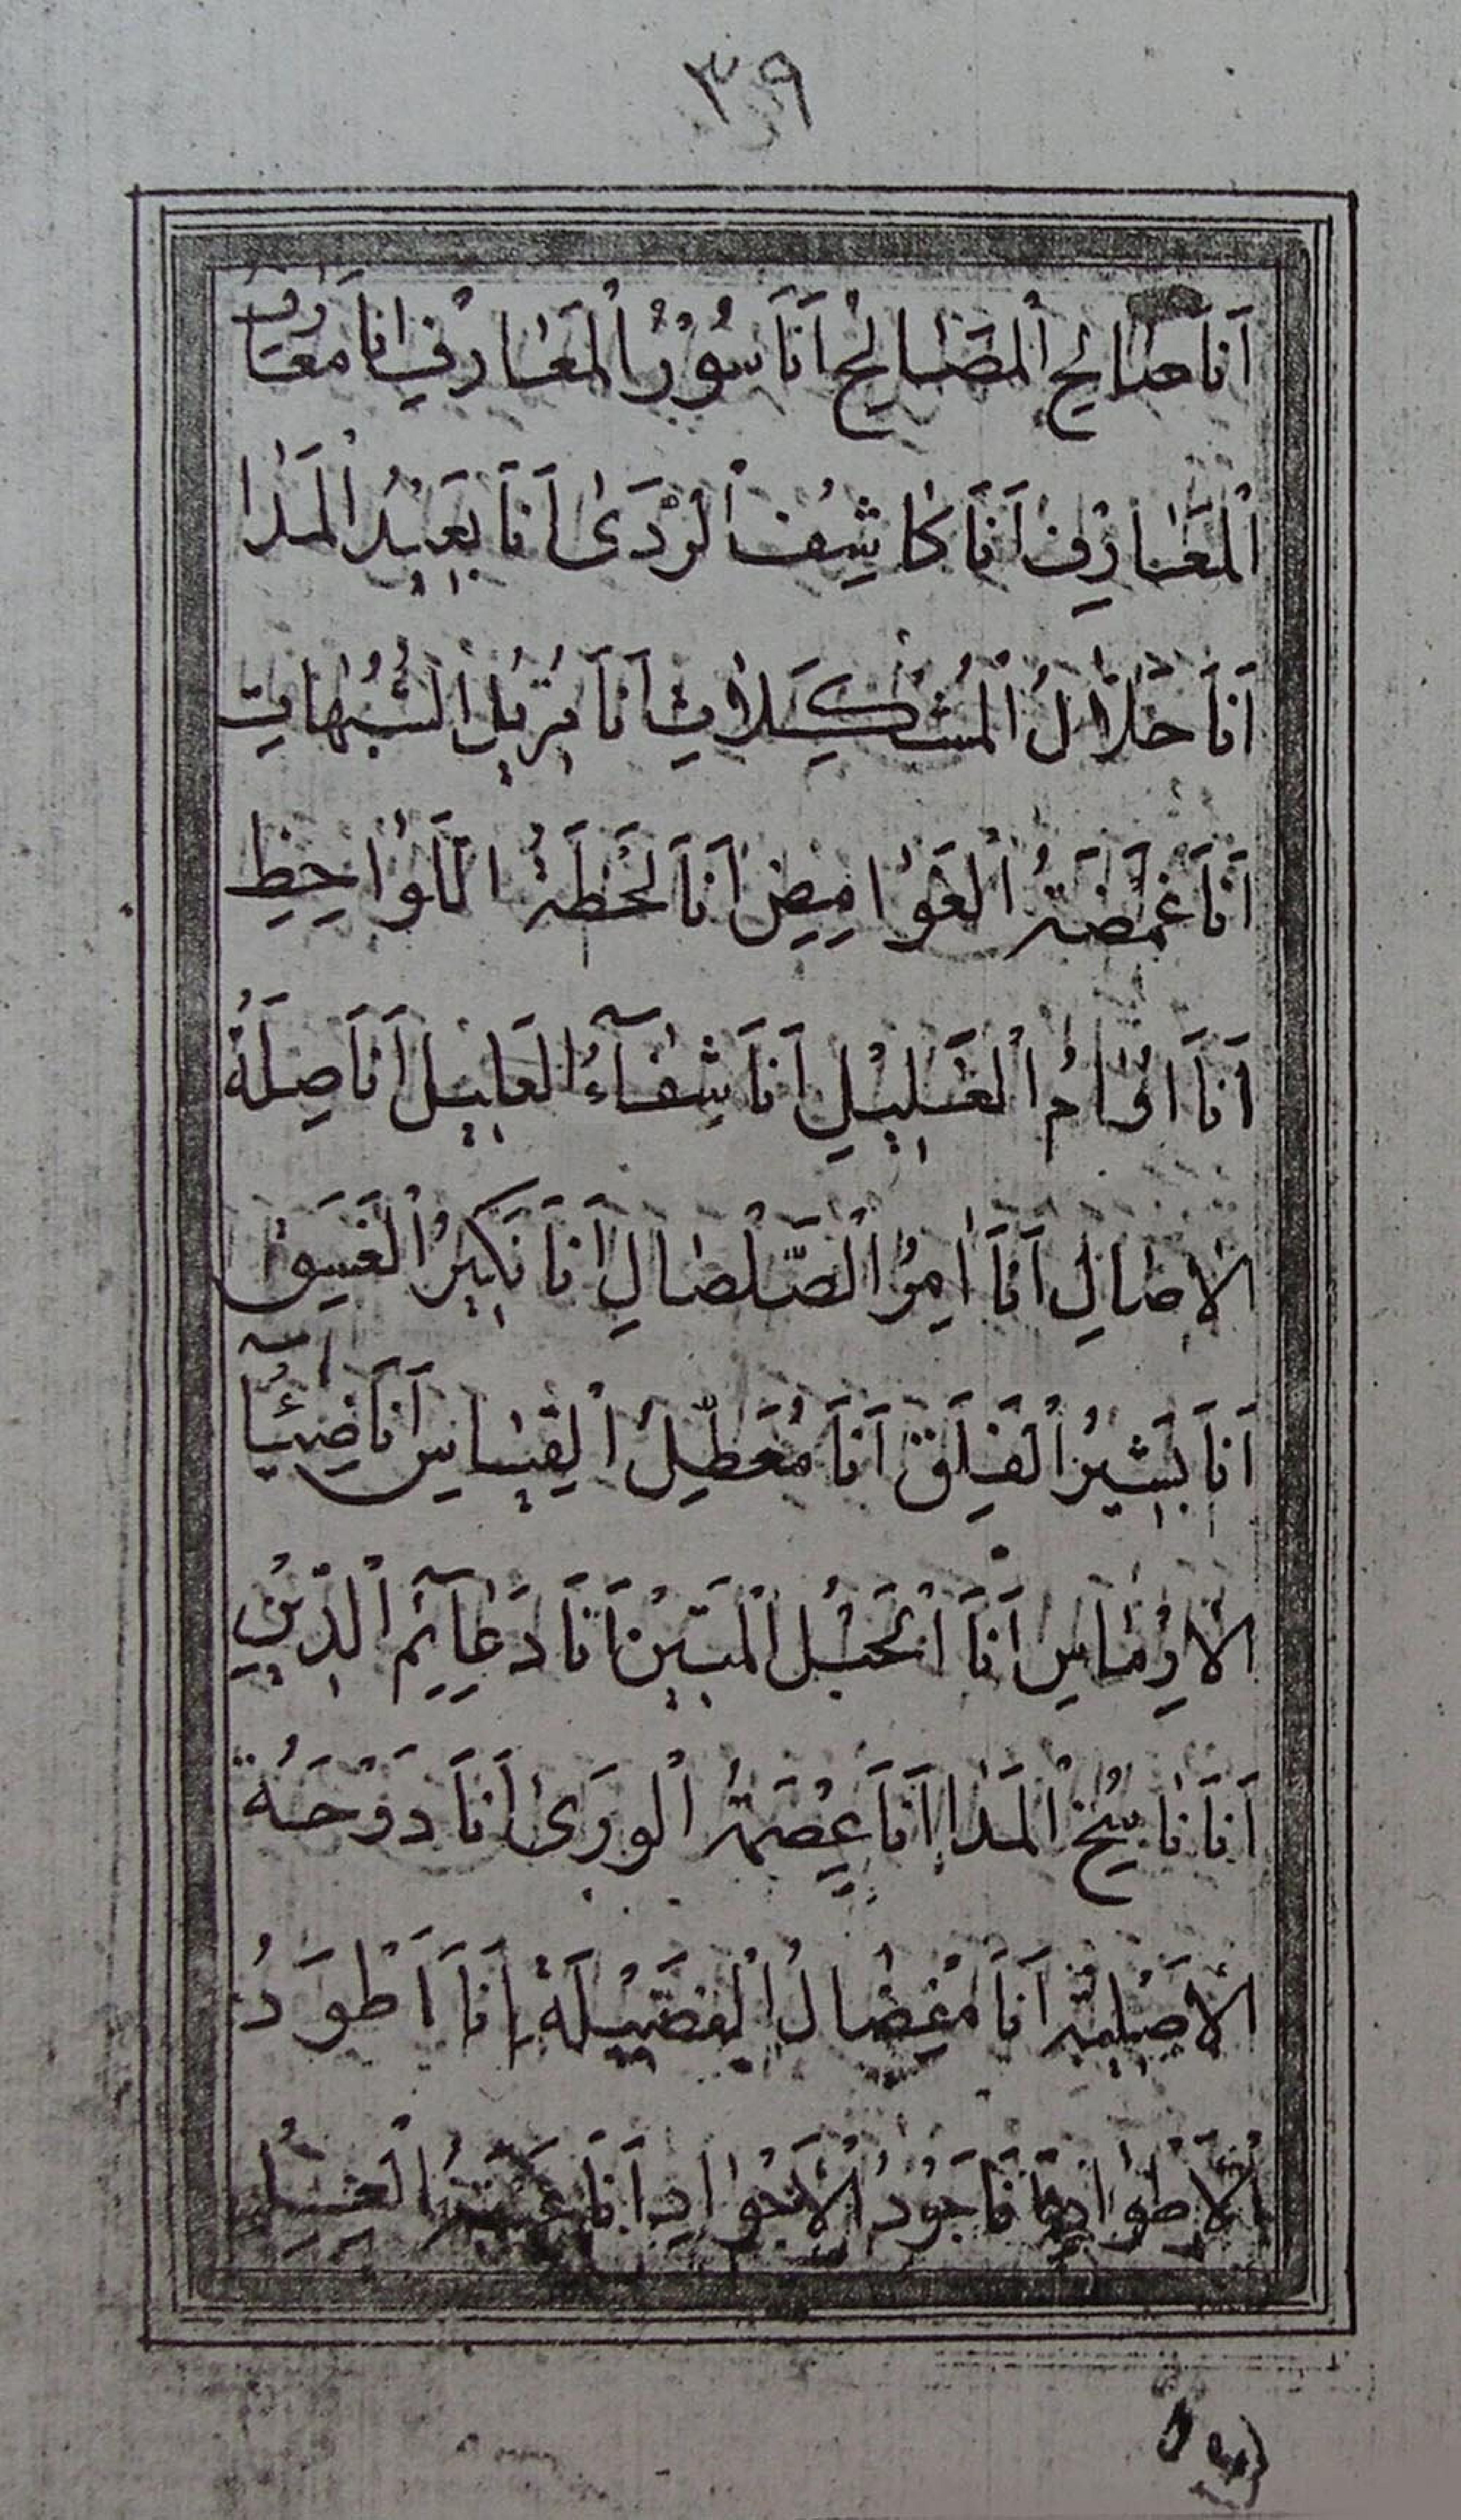 ٣٩
اَنَا صَالِحُ الْمَصَالِحِ اَنَا سُوْرُ الْمَعَارِفِ اَنَا مَعَارِفُ
الْمَعَارِفِ اَنَا كَاشِفُ الْرَّدَى اَنَا بَعِيْدُ الْمَدَا
اَنَا حَلَّالُ الْمُشْكِلَاتِ اَنَا مُزِيْلُ الشُّبُهَاتِ
اَنَا غَمْضَةُ الْغَوَامِضِ اَنَا لَحْظَةُ اللَّوَاحِظِ
اَنَا اُوَامُ الْغَلِيْلِ اَنَا شِفَآءُ الْعَلِيْلِ اَنَا صِلَةُ
الْاِصَالِ اَنَا اٰمِرُ الْصَّلْصَالِ اَنَا نَكِيْرُ الْغَسَقِ
اَنَا بَشِيْرُ الْفَلَقِ اَنَا مُعَطِّلُ الْقِيَاسِ اَنَا ضِيَآءُ
الْاِرْمَاسِ اَنَا الْحَبْلُ الْمَتِيْنُ اَنَا دَعَآئِمُ الْدِّيْنِ
اَنَا نَاسِخُ الْمَدَا اَنَا عِصْمَةُ الْوَرَىٰ اَنَا دَوْحَةُ
الْاَصْلِيَّةِ اَنَا مِفْضَالُ الْفَضِيْلَةِ اَنَا اَطْوَدُ
الْاَطْوَادِ اَنَا جُوْدُ الْاَجْوَادِ اَنَا